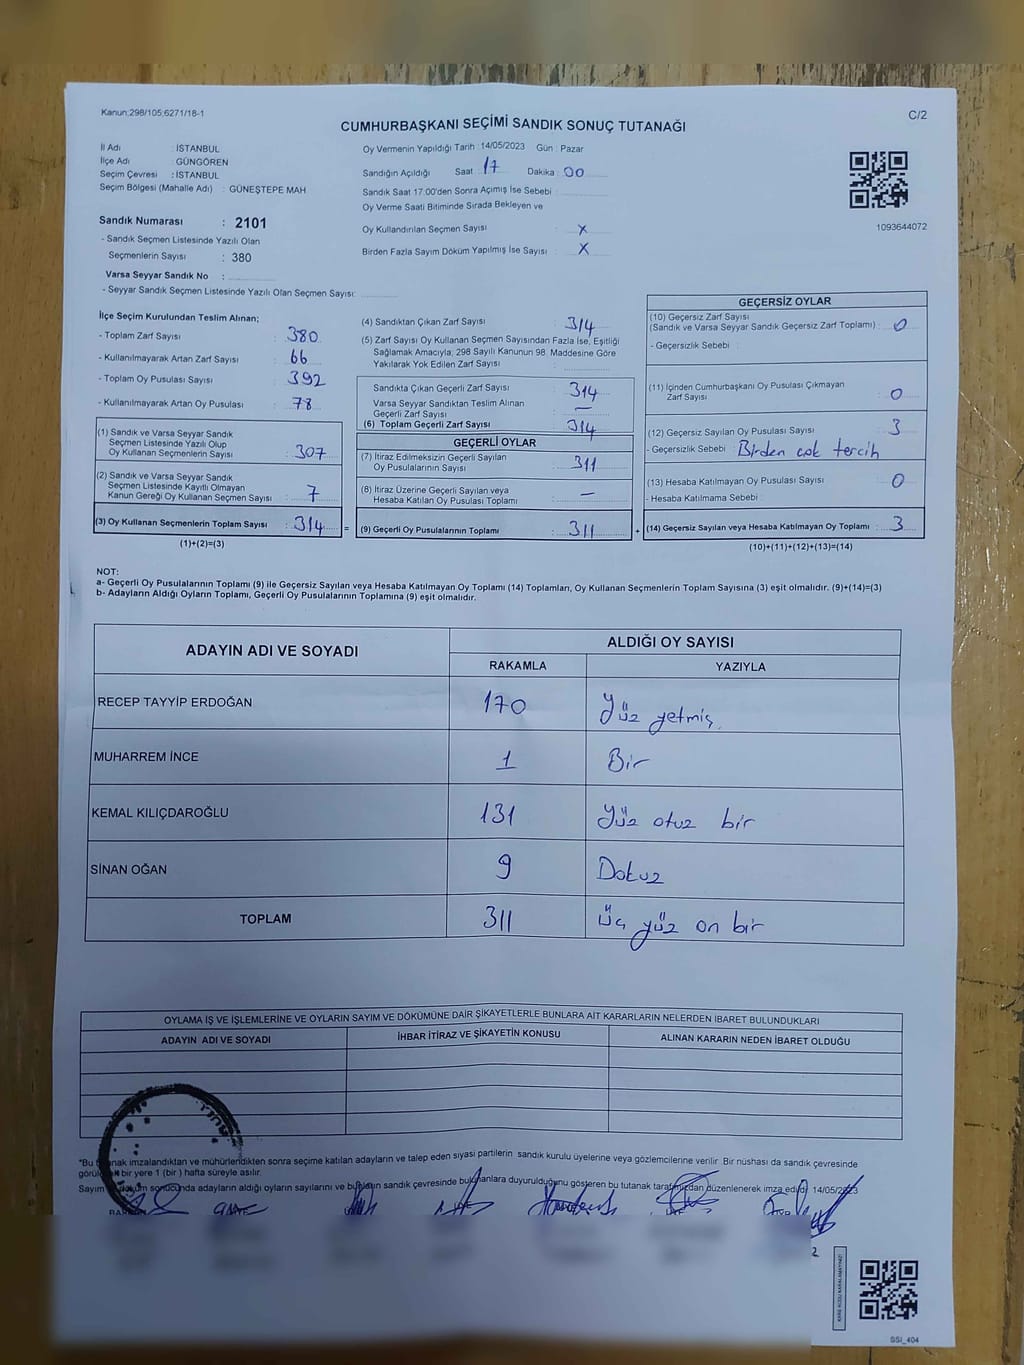 Kanun;298/105;6271/18-1
C/2
CUMHURBAŞKANI SEÇİMİ SANDIK SONUÇ TUTANAĞI
İl Adı : İSTANBUL
İlçe Adı : GÜNGÖREN
Seçim Çevresi : İSTANBUL
Seçim Bölgesi (Mahalle Adı) : GÜNEŞTEPE MAH
Sandık Numarası : 2101
- Sandık Seçmen Listesinde Yazılı Olan
Seçmenlerin Sayısı : 380
Varsa Seyyar Sandık No :
- Seyyar Sandık Seçmen Listesinde Yazılı Olan Seçmen Sayısı:
Oy Vermenin Yapıldığı Tarih :14/05/2023 Gün : Pazar
Sandığın Açıldığı Saat : 17 Dakika : 00
Sandık Saat 17:00'den Sonra Açılmış İse Sebebi :
Oy Verme Saati Bitiminde Sırada Bekleyen ve
Oy Kullandırılan Seçmen Sayısı : X
Birden Fazla Sayım Döküm Yapılmış İse Sayısı : X
1093644072
İlçe Seçim Kurulundan Teslim Alınan;
- Toplam Zarf Sayısı : 380
- Kullanılmayarak Artan Zarf Sayısı : 66
- Toplam Oy Pusulası Sayısı : 392
- Kullanılmayarak Artan Oy Pusulası : 78
(1) Sandık ve Varsa Seyyar Sandık
Seçmen Listesinde Yazılı Olup
Oy Kullanan Seçmenlerin Sayısı : 307
(2) Sandık ve Varsa Seyyar Sandık
Seçmen Listesinde Kayıtlı Olmayan
Kanun Gereği Oy Kullanan Seçmen Sayısı : 7
(3) Oy Kullanan Seçmenlerin Toplam Sayısı : 314 =
(1)+(2)=(3)
(4) Sandıktan Çıkan Zarf Sayısı : 314
(5) Zarf Sayısı Oy Kullanan Seçmen Sayısından Fazla İse, Eşitliği
Sağlamak Amacıyla, 298 Sayılı Kanunun 98. Maddesine Göre
Yakılarak Yok Edilen Zarf Sayısı :
Sandıkta Çıkan Geçerli Zarf Sayısı : 314
Varsa Seyyar Sandıktan Teslim Alınan
Geçerli Zarf Sayısı : —
(6) Toplam Geçerli Zarf Sayısı : 314
GEÇERLİ OYLAR
(7) İtiraz Edilmeksizin Geçerli Sayılan
Oy Pusulalarının Sayısı : 311
(8) İtiraz Üzerine Geçerli Sayılan veya
Hesaba Katılan Oy Pusulası Toplamı : —
(9) Geçerli Oy Pusulalarının Toplamı : 311 +
GEÇERSİZ OYLAR
(10) Geçersiz Zarf Sayısı
(Sandık ve Varsa Seyyar Sandık Geçersiz Zarf Toplamı) : 0
- Geçersizlik Sebebi :
(11) İçinden Cumhurbaşkanı Oy Pusulası Çıkmayan
Zarf Sayısı : 0
(12) Geçersiz Sayılan Oy Pusulası Sayısı : 3
- Geçersizlik Sebebi : Birden cok tercih
(13) Hesaba Katılmayan Oy Pusulası Sayısı : 0
- Hesaba Katılmama Sebebi :
(14) Geçersiz Sayılan veya Hesaba Katılmayan Oy Toplamı : 3
(10)+(11)+(12)+(13)=(14)
NOT:
a- Geçerli Oy Pusulalarının Toplamı (9) ile Geçersiz Sayılan veya Hesaba Katılmayan Oy Toplamı (14) Toplamları, Oy Kullanan Seçmenlerin Toplam Sayısına (3) eşit olmalıdır. (9)+(14)=(3)
b- Adayların Aldığı Oyların Toplamı, Geçerli Oy Pusulalarının Toplamına (9) eşit olmalıdır.
ADAYIN ADI VE SOYADI
ALDIĞI OY SAYISI
RAKAMLA YAZIYLA
RECEP TAYYİP ERDOĞAN 170 Yüz yetmiş
MUHARREM İNCE 1 Bir
KEMAL KILIÇDAROĞLU 131 Yüz otuz bir
SİNAN OĞAN 9 Dokuz
TOPLAM 311 Üç yüz on bir
OYLAMA İŞ VE İŞLEMLERİNE VE OYLARIN SAYIM VE DÖKÜMÜNE DAİR ŞİKAYETLERLE BUNLARA AİT KARARLARIN NELERDEN İBARET BULUNDUKLARI
ADAYIN ADI VE SOYADI İHBAR İTİRAZ VE ŞİKAYETİN KONUSU ALINAN KARARIN NEDEN İBARET OLDUĞU
*Bu imzalandıktan ve mühürlendikten sonra seçime katılan adayların ve talep eden siyasi partilerin sandık kurulu üyelerine veya gözlemcilerine verilir Bir nüshası da sandık çevresinde
bir yere 1 (bir ) hafta süreyle asılır.
Sayım sonucunda adayların aldığı oyların sayılarını ve sandık çevresinde bulunanlara duyurulduğunu gösteren bu tutanak tarafımızdan düzenlenerek imza edildi. 14/05/2023
2
SSI_404